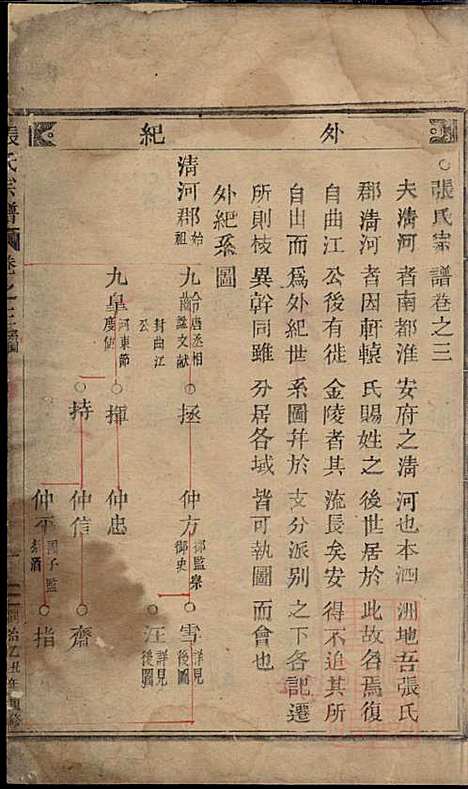 外紀
○張氏宗譜卷之三
夫淸河者南都淮安府之淸河也本泗洲地吾張氏
郡淸河者因軒轅氏賜姓之後世居於此故名焉復
自曲江公後有徙金陵者其流長矣安得不追其所
自出而為外紀世系圖幷於支分派別之下各記遷
所則枝異幹同雖分居各域皆可執圖而會也
外紀系圖
淸河郡 始祖
九齡 唐丞相諡文献封曲江公
○拯
仲方 御史
○雪 詳見後圖
○汪 詳見後圖
九皐 河東節度使
○揮
仲忠
○持
仲信
○齋
仲平 國子監祭酒
○指
張氏宗譜 卷之三
同治乙丑年